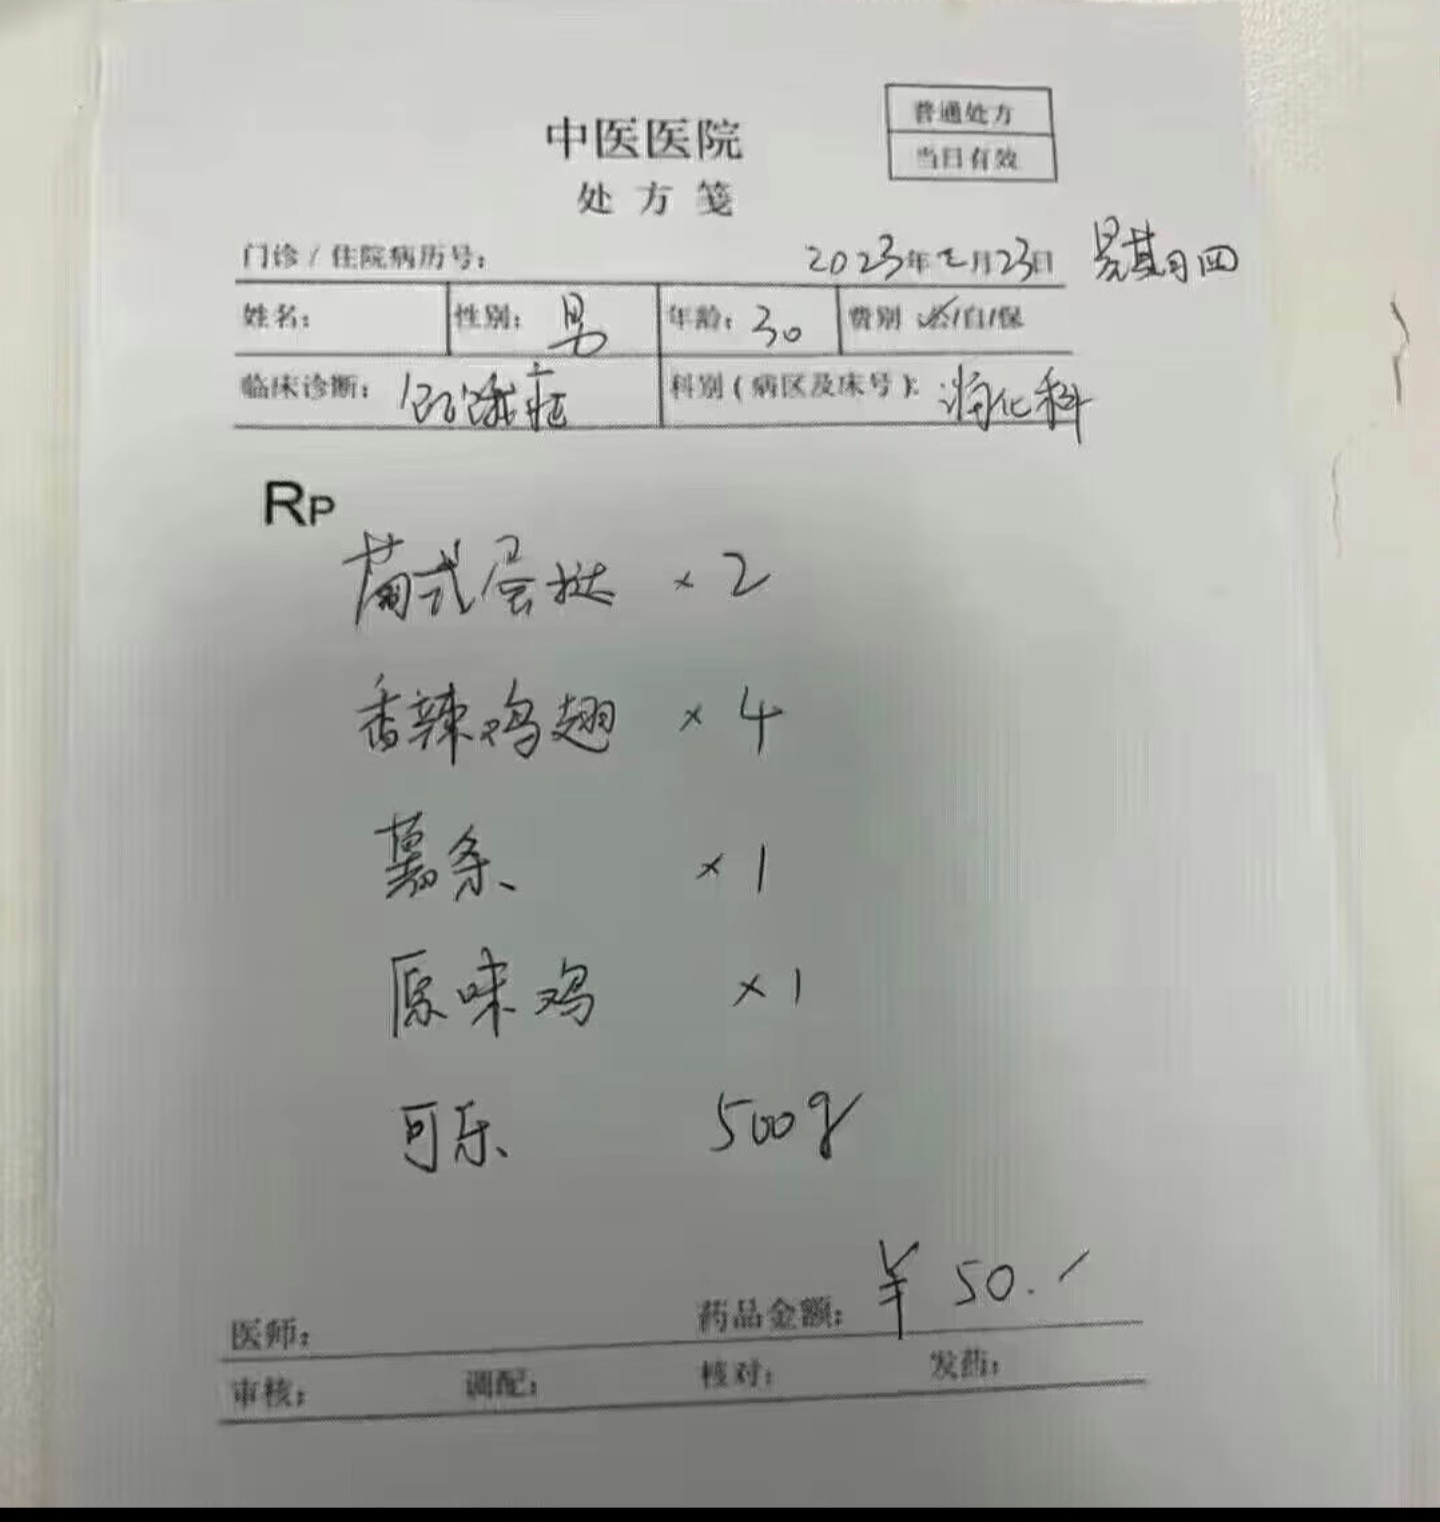 普通处方
当日有效
中医医院
处方笺
门诊/住院病历号: 2023年2月23日 星期四
姓名: 性别: 男 年龄: 30 费别 公/自/保
临床诊断: 饥饿症 科别(病区及床号): 消化科
RP
葡式蛋挞 × 2
香辣鸡翅 × 4
薯条 × 1
原味鸡 × 1
可乐 500g
医师: 药品金额: ¥ 50.
审核: 调配: 核对: 发药: